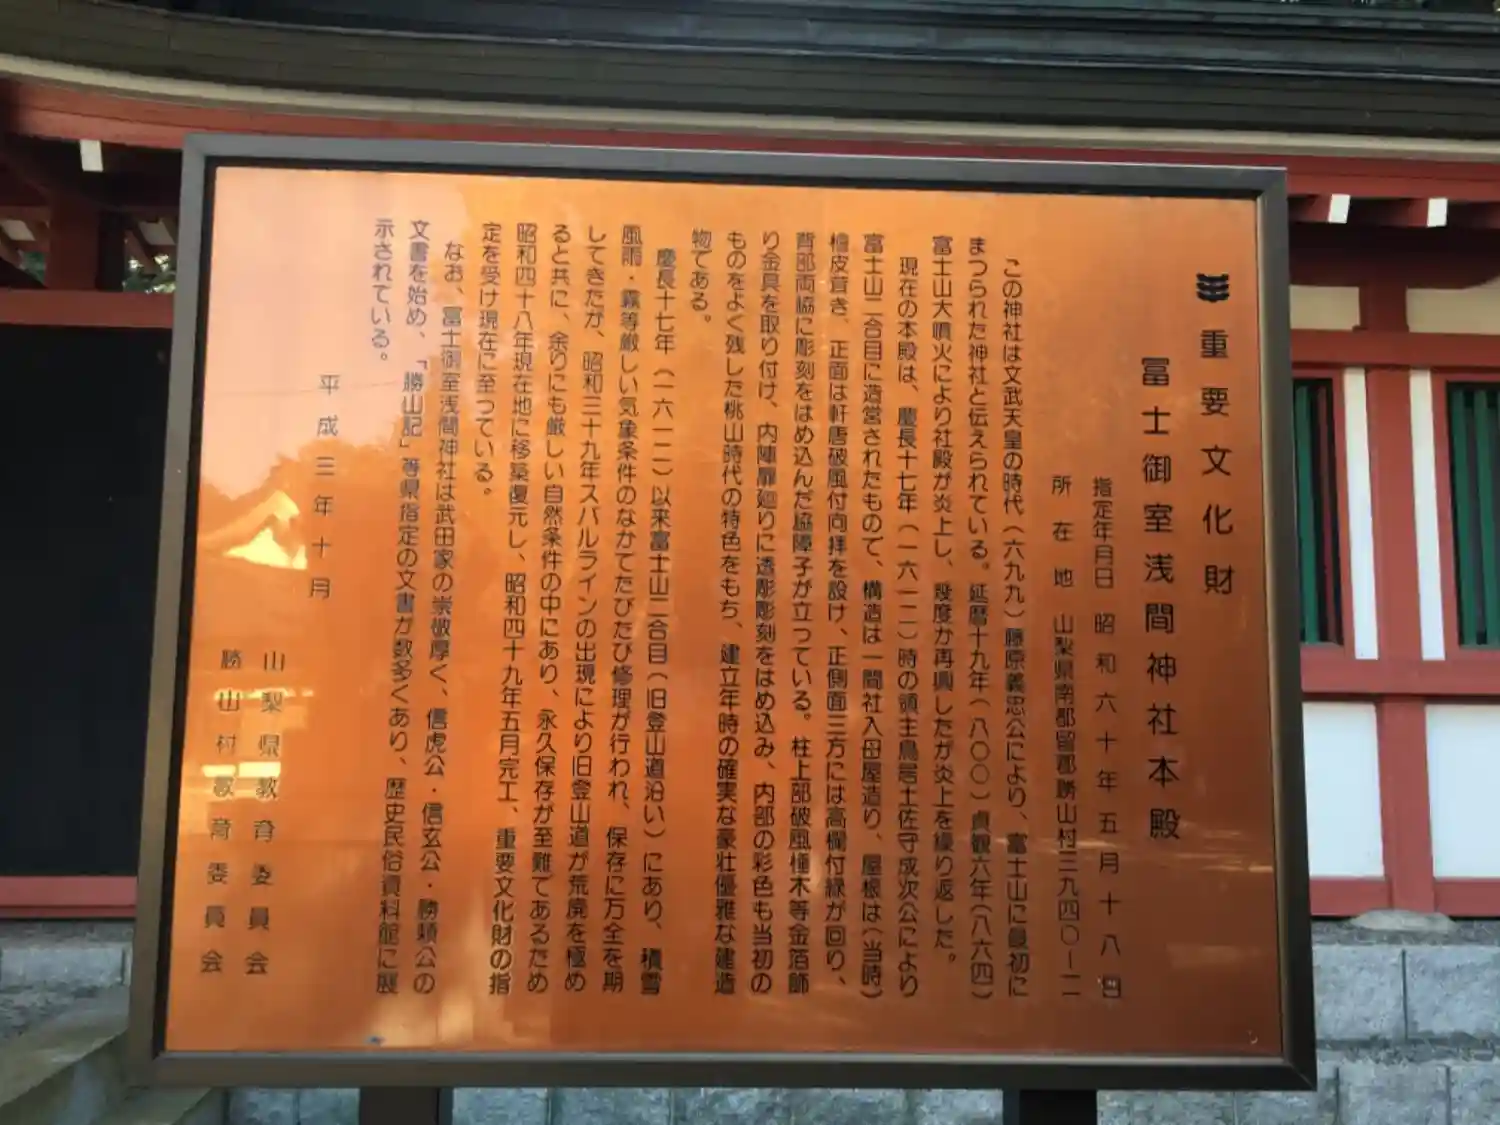 重要文化財
冨士御室浅間神社本殿
指定年月日 昭和六十年五月十八日
所在地 山梨県南都留郡勝山村三九四〇ー二
この神社は文武天皇の時代(六九九)藤原義忠公により、富士山に最初に
まつられた神社と伝えられている。延暦十九年(八〇〇)貞観六年(八六四)
富士山大噴火により社殿が炎上し、幾度か再興したが炎上を繰り返した。
現在の本殿は、慶長十七年(一六一二)時の領主鳥居土佐守成次公により
富士山二合目に造営されたもので、構造は一間社入母屋造り、屋根は(当時)
檜皮葺き、正面は軒唐破風付向拝を設け、正側面三方には高欄付縁が回り、
背部両脇に彫刻をはめ込んだ脇障子が立っている。柱上部破風棰木等金箔飾
り金具を取り付け、内陣扉廻りに透彫彫刻をはめ込み、内部の彩色も当初の
ものをよく残した桃山時代の特色をもち、建立年時の確実な豪壮優雅な建造
物である。
慶長十七年(一六一二)以来富士山二合目(旧登山道沿い)にあり、積雪
風雨・霧等厳しい気象条件のなかでたびたび修理が行われ、保存に万全を期
してきたが、昭和三十九年スバルラインの出現により旧登山道が荒廃を極め
ると共に、余りにも厳しい自然条件の中にあり、永久保存が至難であるため
昭和四十八年現在地に移築復元し、昭和四十九年五月完工、重要文化財の指
定を受け現在に至っている。
なお、冨士御室浅間神社は武田家の崇敬厚く、信虎公・信玄公・勝頼公の
文書を始め、「勝山記」等県指定の文書が数多くあり、歴史民俗資料館に展
示されている。
平成三年十月
山梨県教育委員会
勝山村教育委員会